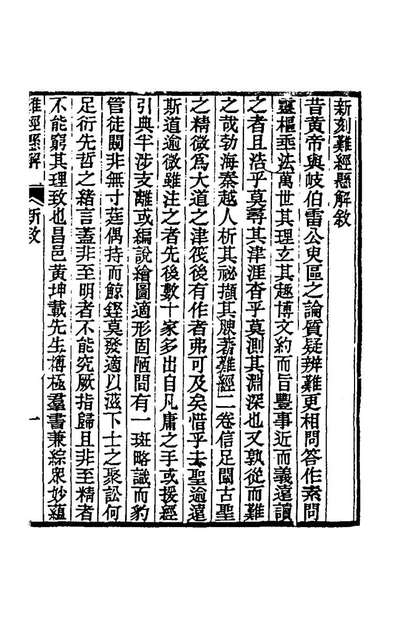 新刻難經懸解敘
昔黃帝與岐伯雷公臾區之論質疑辨難更相問答作素問
靈樞垂法萬世其理玄其趣博文約而旨豐事近而義遠讀
之者且浩乎莫尋其津涯杳乎莫測其淵深也又孰從而難
之哉勃海秦越人析其祕擷其腴著難經二卷信足闡古聖
之精微為大道之津筏後有作者弗可及矣惜乎去聖逾遠
斯道逾微雖注之者先後數十家多出自凡庸之手或援經
引典半涉支離或編說繪圖適形固陋間有一斑略識而豹
管徒闚非無寸莛偶持而鯨鏗莫發適以滋下士之聚訟何
足衍先哲之緒言蓋非至明者不能究厥指歸且非至精者
不能窮其理致也昌邑黃坤載先生博極羣書兼綜眾妙蘊
難經懸解
新敘
一